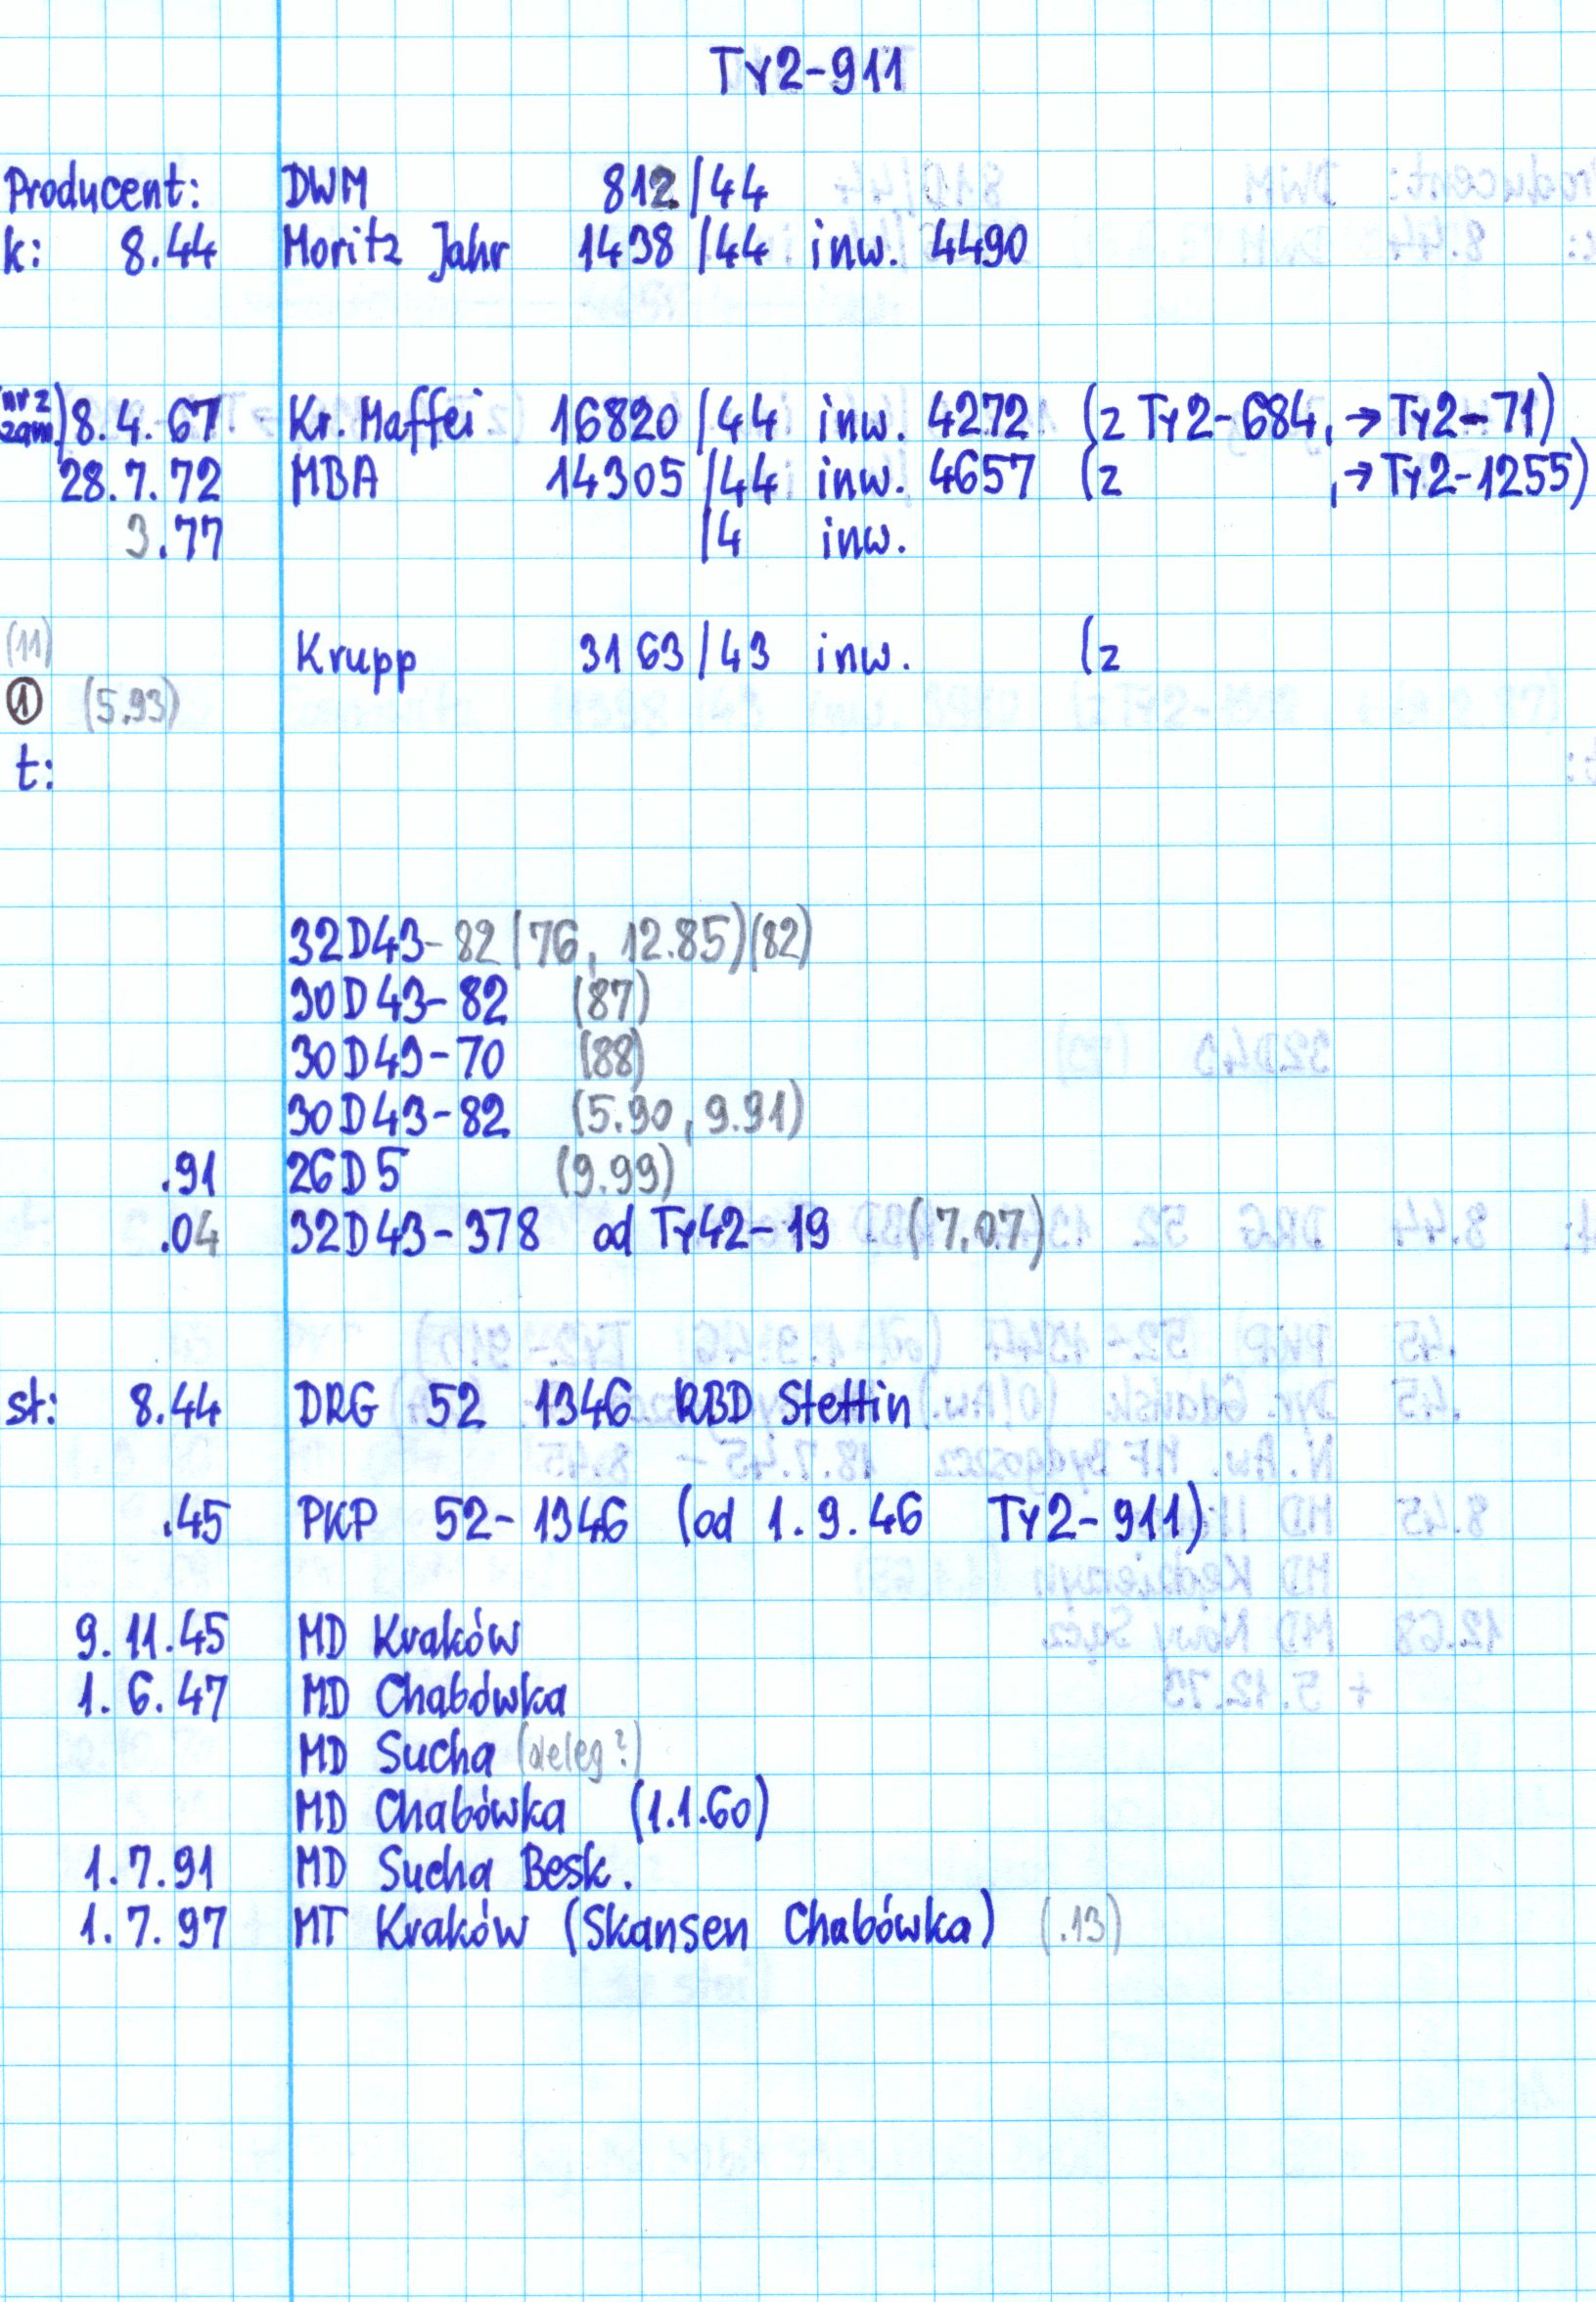 Ty2-911
Producent: DWM 812/44
k: 8.44 Moritz Jahr 1438/44 inw. 4490
(nr z zam.) 8.4.67 Kr. Maffei 16820/44 inw. 4272 (z Ty2-684, → Ty2-71)
28.7.72 MBA 14305/44 inw. 4657 (z , → Ty2-1255)
3.77 /4 inw.
(11) Krupp 3163/43 inw. (z
① (5.93)
t:
32D43-82 (76, 12.85) (82)
30D43-82 (87)
30D43-70 (88)
30D43-82 (5.90, 9.91)
.91 26D5 (9.99)
.04 32D43-378 od Ty42-19 (7.07)
st: 8.44 DRG 52 1346 RBD Stettin
.45 PKP 52-1346 (od 1.9.46 Ty2-911)
9.11.45 MD Kraków
1.6.47 MD Chabówka
MD Sucha (deleg?)
MD Chabówka (1.1.60)
1.7.91 MD Sucha Besk.
1.7.97 MT Kraków (Skansen Chabówka) (.13)